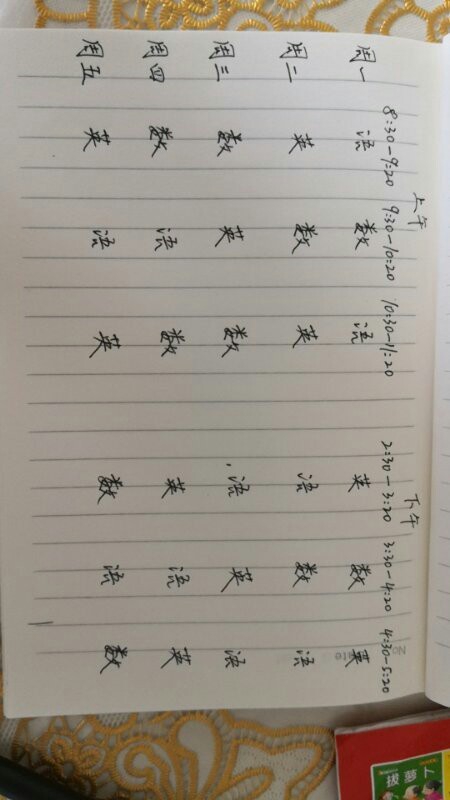 上午 下午
8:30-9:20 9:30-10:20 10:30-11:20 2:30-3:20 3:30-4:20 4:30-5:20
周一 语 数 语 英 数 英
周二 英 数 英 语 数 语
周三 数 英 数 语 英 语
周四 数 语 数 英 语 英
周五 英 语 英 数 语 数
拔萝卜